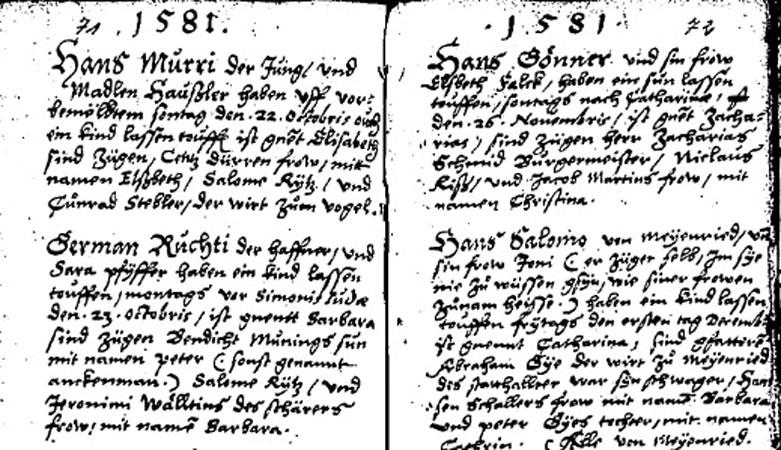 71 . 1581.
Hans Murri der Jung, und
Madlen Häußler haben uff vor-
bemöldtem sontag den. 22. Octobris
ein kind lassen touffe ist gnet Elisabeth
sind Zügen, Dürren frow, mit
namen Elsbeth, Salome Rytz, und
Cunrad Stebler, der wirt zum vogel.
German Ruchti der haffner, und
Sara pfyffer haben ein kind lassen
touffen, montags vor Simonis Judæ
den. 23. Octobris, ist gnentt Barbara
sind Zügen Bendicht Munings sun
mit namen peter ( sonst genannt
anckenman.) Salome Rytz, und
Jeronimi Wälltins des schärers
frow, mit name Barbara.
. 1581. 72
Hans Gönner und sin frow
Elsbeth Falck, haben ein sun lassen
touffen, sontags nach Catharinæ,
den. 26. Novembris, ist gnet Zacha-
rias, sind Zügen herr Zacharias
Schmid Burgermeister, Niclaus
und Jacob Martins frow, mit
namen Christina.
Hans Salomo von Meyenried, und
sin frow Joni ( er Zügen selb, Im sye
nie zu wüssen gsyn, wie siner frowen
Zunam heisse.) haben ein kind lassen
touffen frytags den ersten tag Decemb
ist gnennt Catharina, sind gfattere
Abraham Gye der wirt zu Meyenried
des statthallter war syn schwager, Han
sen Schallers frow mit name Barbara
Und peter Gyes tochter, mit namen
Cathrin. ( Alle von Meyenried.